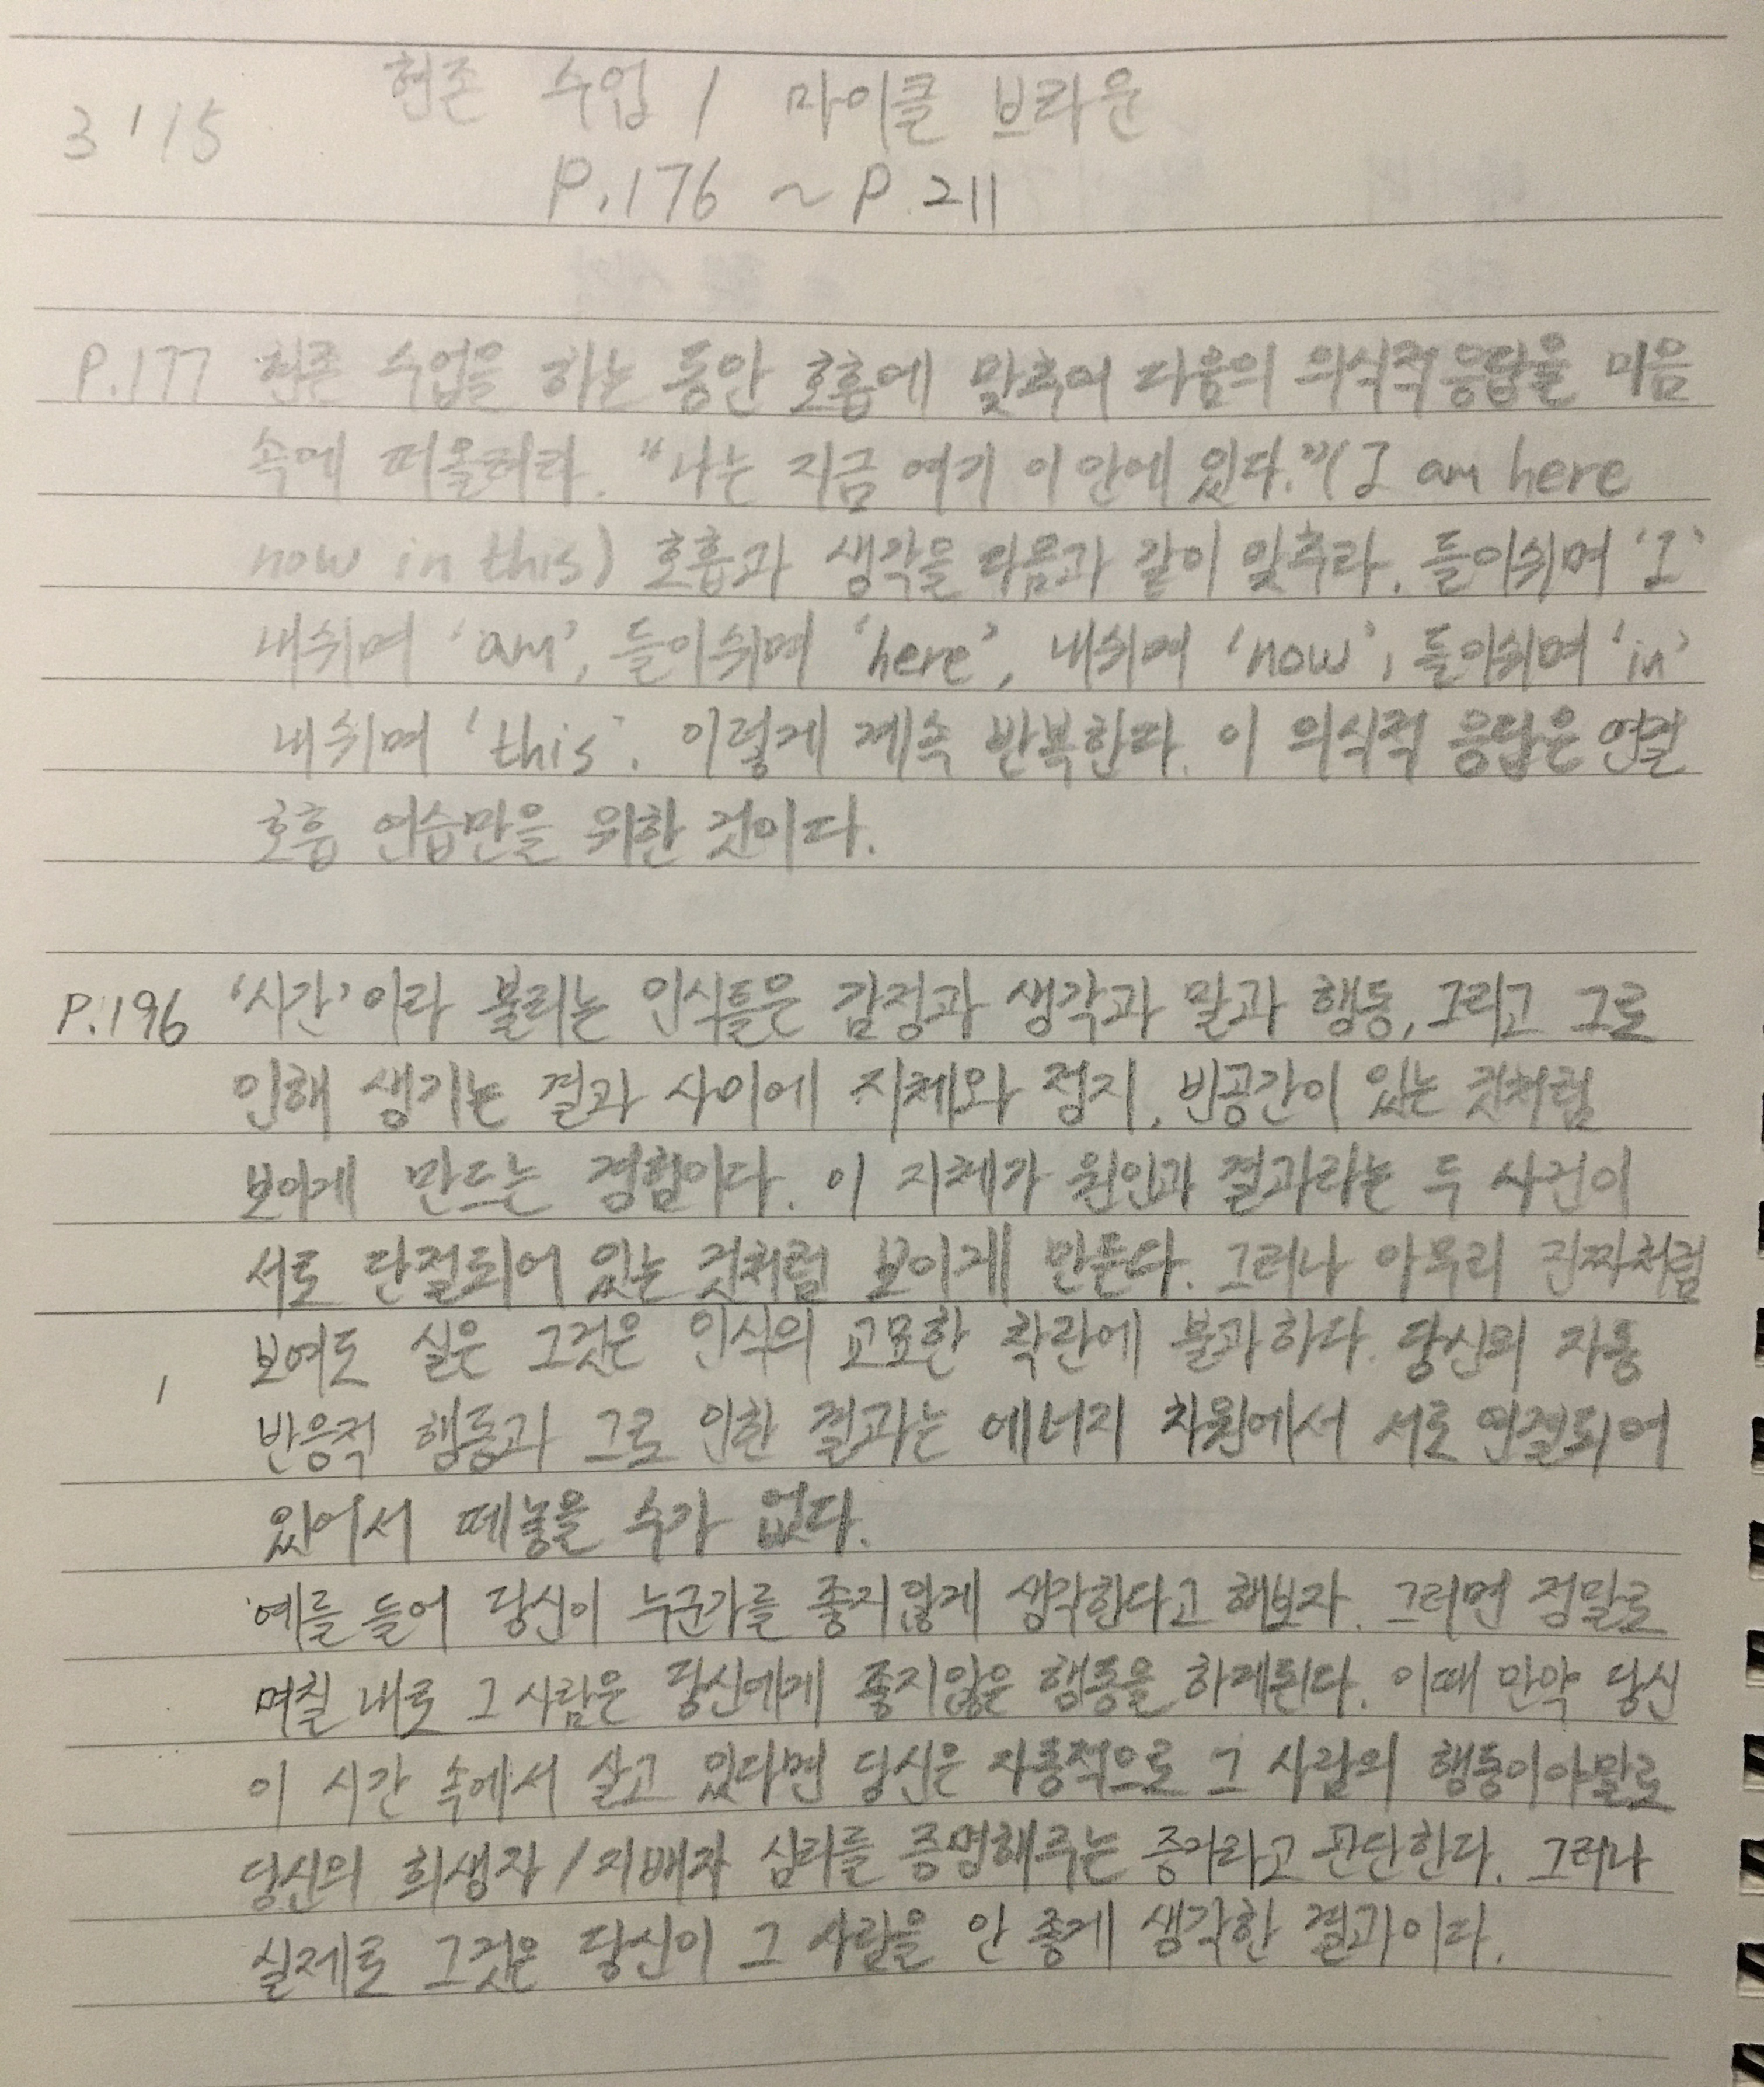 3 / 15
현존 수업 / 마이클 브라운
P.176 ~ P.211
P.177 현존 수업을 하는 동안 호흡에 맞추어 다음의 의식적 응답을 마음
속에 떠올려라. "나는 지금 여기 이 안에 있다." (I am here
now in this) 호흡과 생각을 다음과 같이 맞추라. 들이쉬며 'I'
내쉬며 'am', 들이쉬며 'here', 내쉬며 'now', 들이쉬며 'in'
내쉬며 'this'. 이렇게 계속 반복한다. 이 의식적 응답은 연결
호흡 연습만을 위한 것이다.
P.196 '시간'이라 불리는 인식틀은 감정과 생각과 말과 행동, 그리고 그로
인해 생기는 결과 사이에 지체와 정지, 빈공간이 있는 것처럼
보이게 만드는 경험이다. 이 지체가 원인과 결과라는 두 사건이
서로 단절되어 있는 것처럼 보이게 만든다. 그러나 아무리 진짜처럼
보여도 실은 그것은 인식의 교묘한 착란에 불과하다. 당신의 자동
반응적 행동과 그로 인한 결과는 에너지 차원에서 서로 연결되어
있어서 떼놓을 수가 없다.
예를 들어 당신이 누군가를 좋지않게 생각한다고 해보자. 그러면 정말로
며칠 내로 그 사람은 당신에게 좋지않은 행동을 하게된다. 이때 만약 당신
이 시간 속에서 살고 있다면 당신은 자동적으로 그 사람의 행동이야말로
당신의 희생자/지배자 심리를 증명해주는 증거라고 판단한다. 그러나
실제로 그것은 당신이 그 사람을 안 좋게 생각한 결과이다.